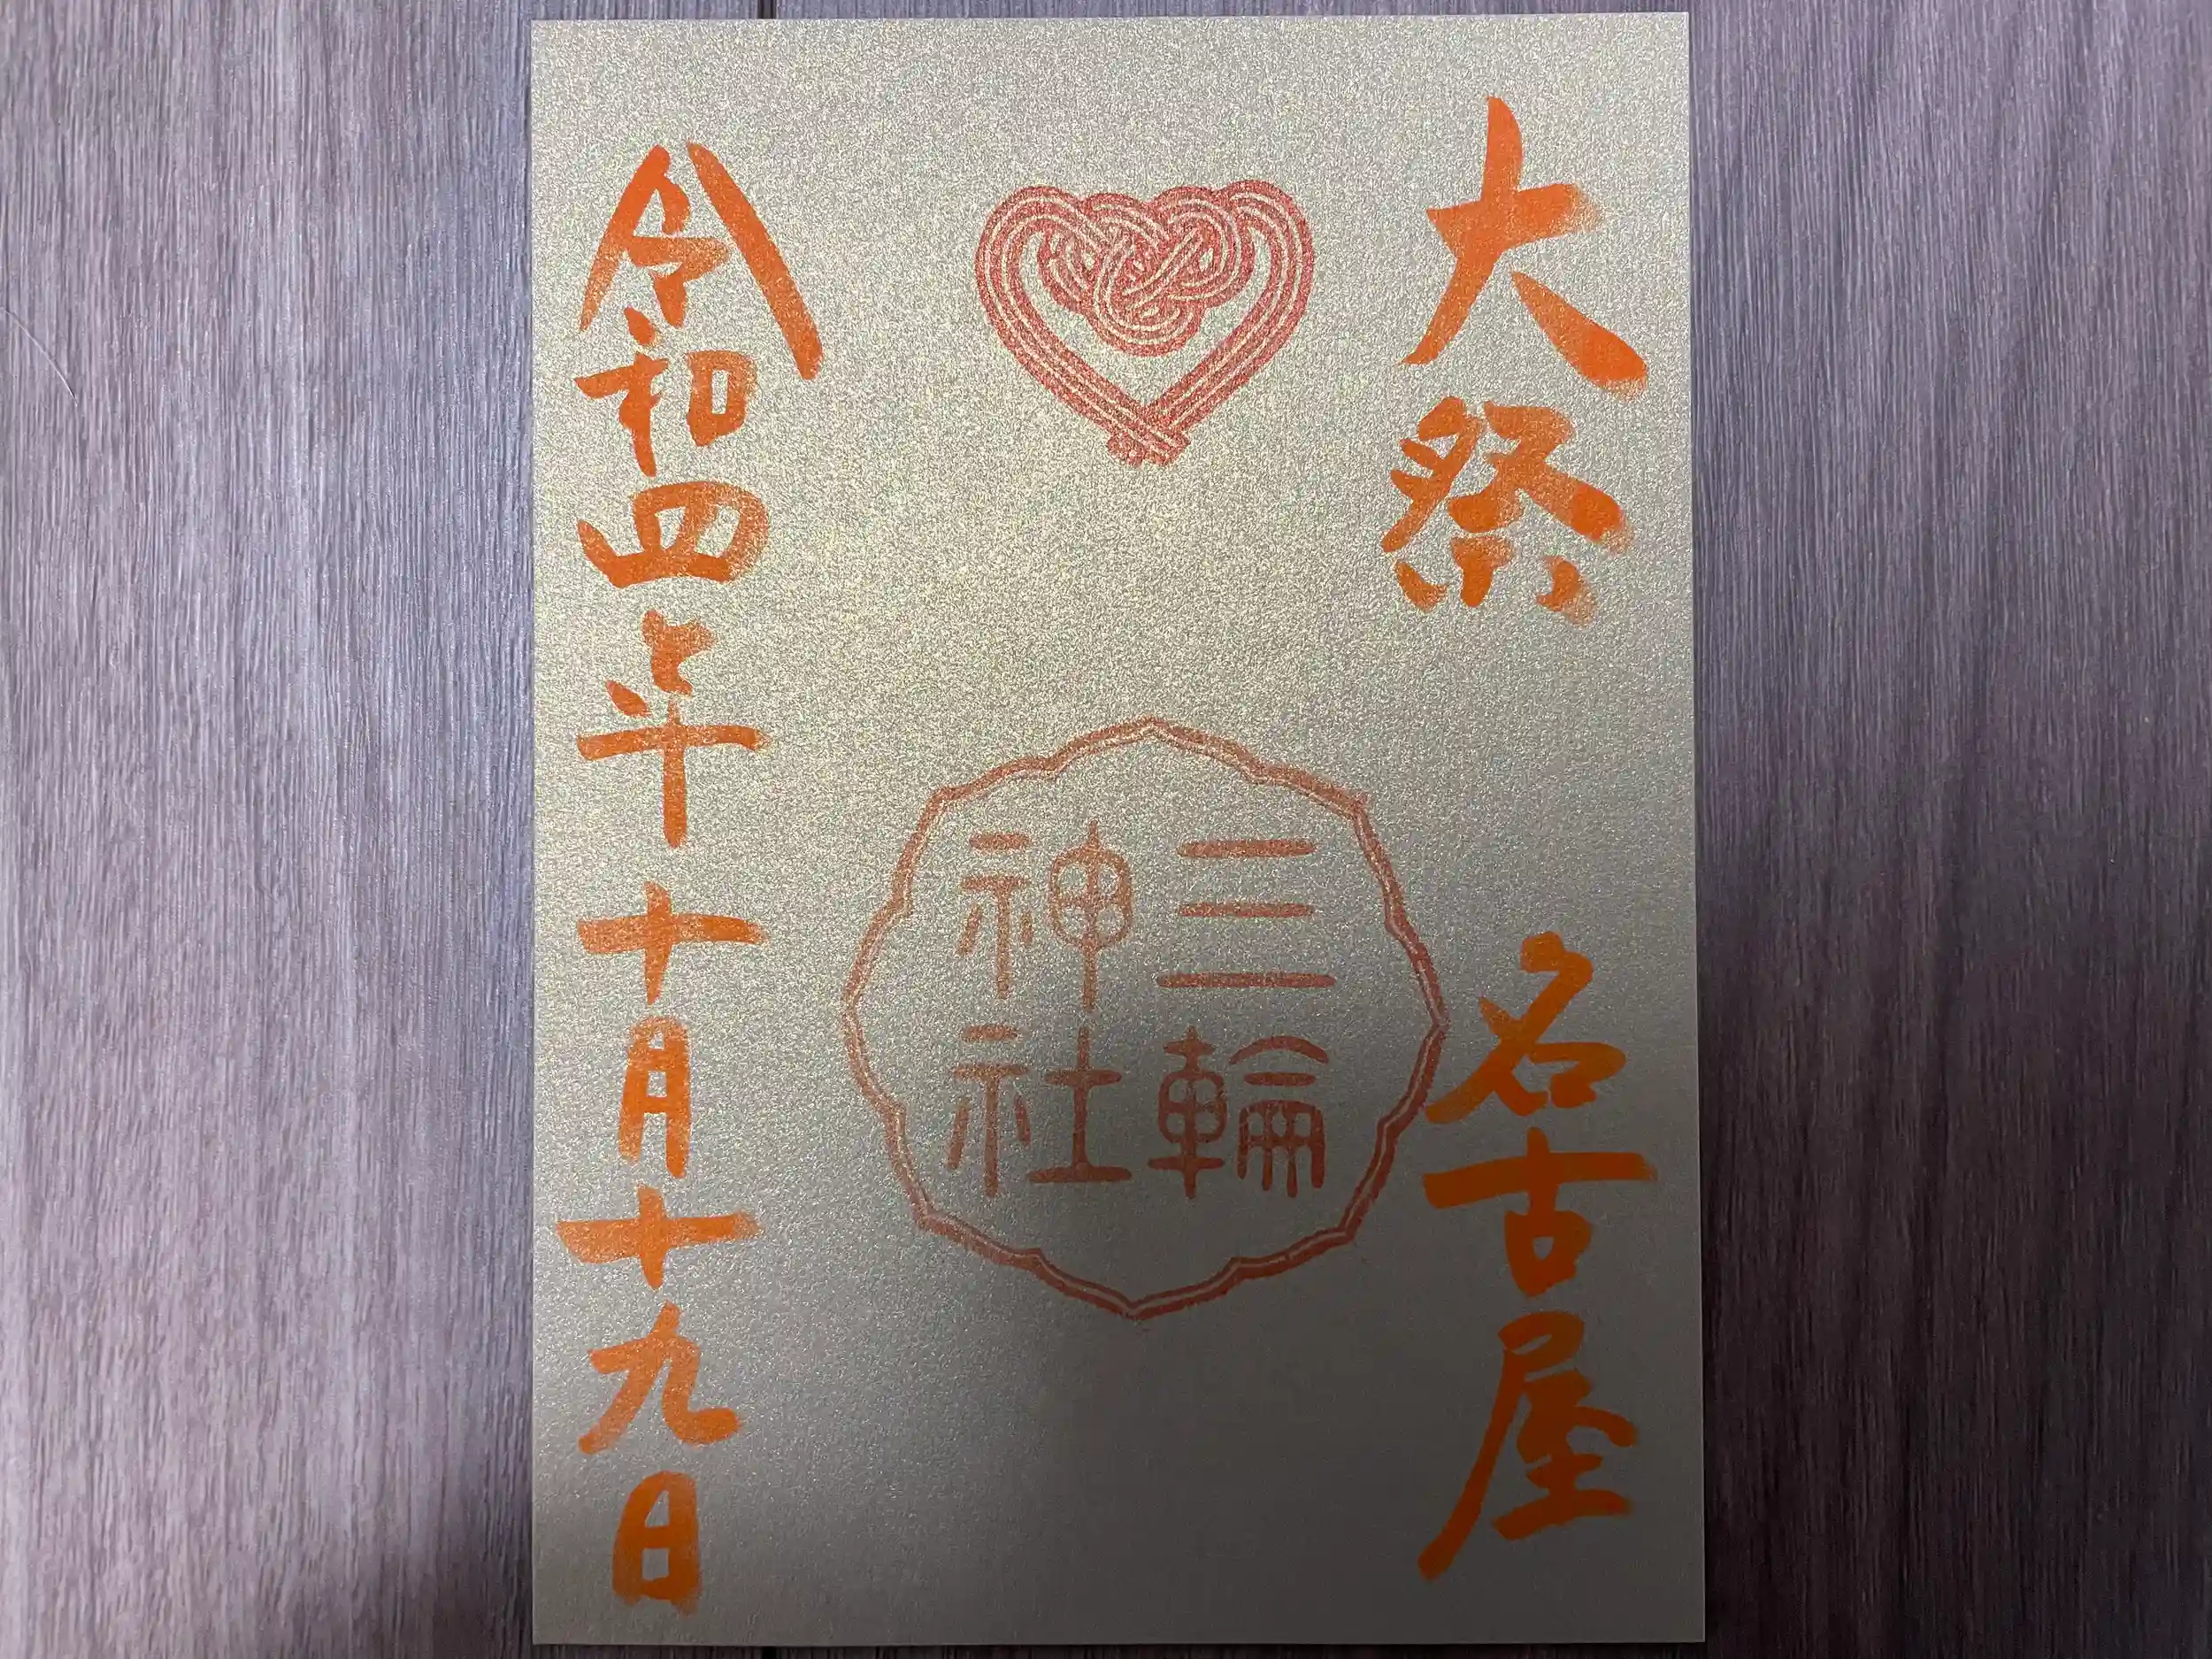 大祭
名古屋
三輪
神社
令和四年十月十九日